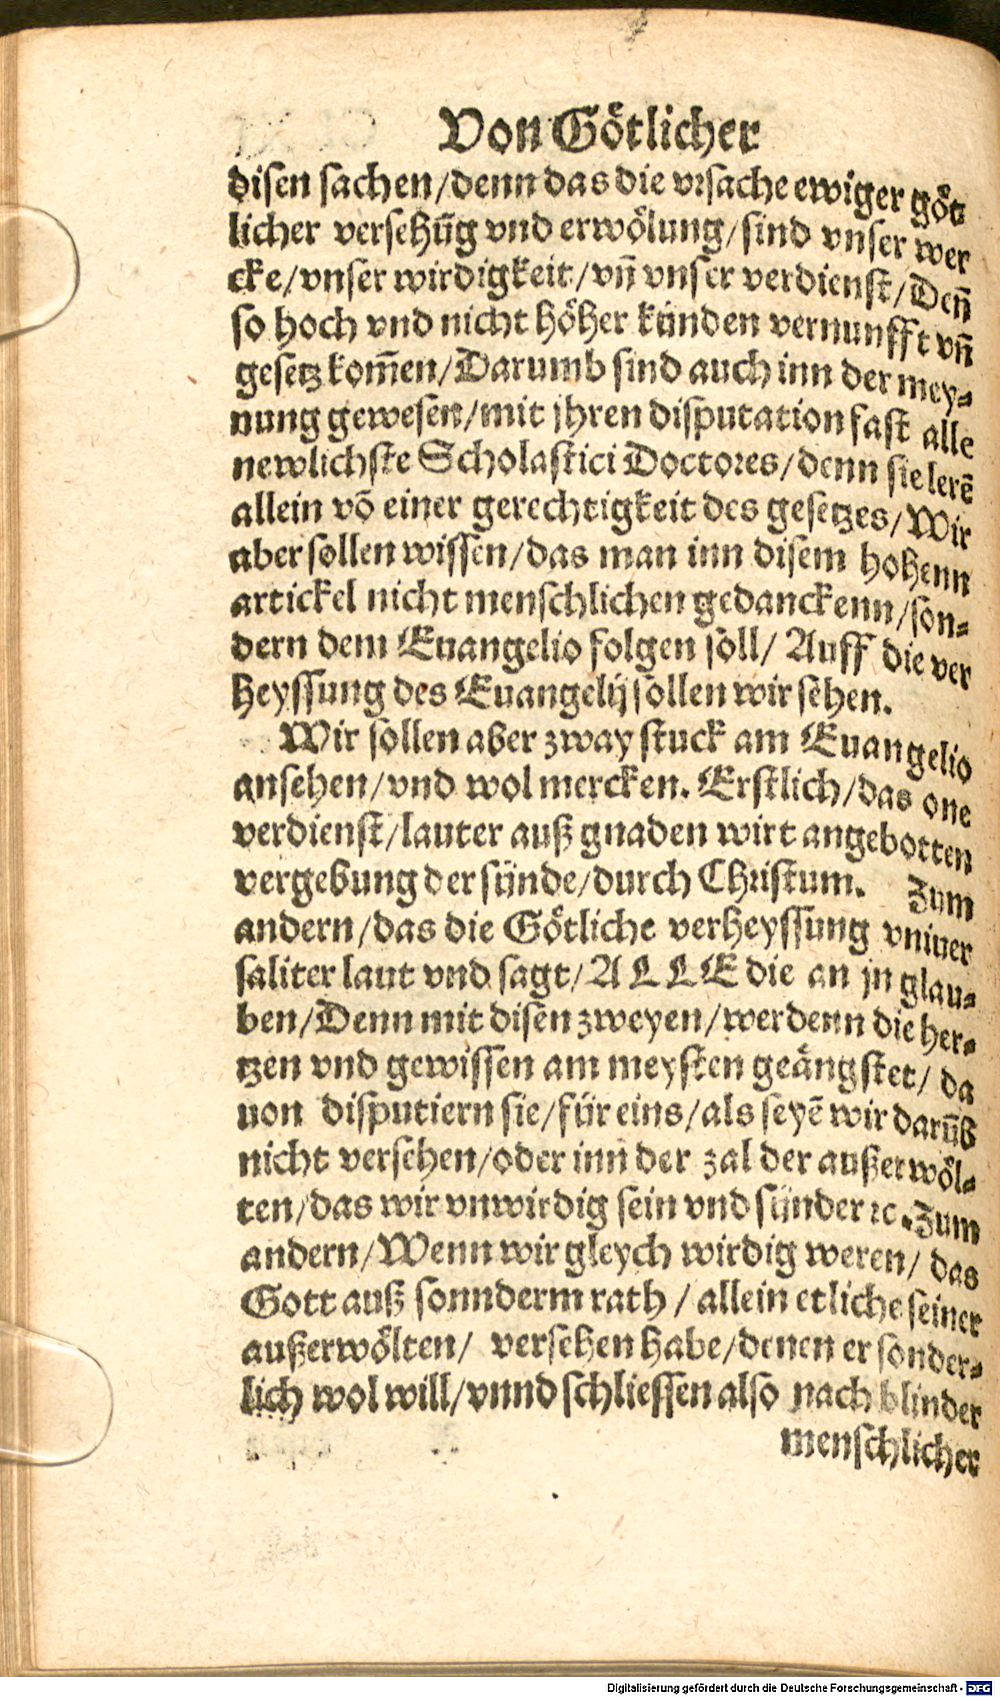 Von Götlicher
disen sachen/denn das die vrsache ewiger göt
licher versehūg vnd erwölung/sind vnser wer
cke/vnser wirdigkeit/vn̄ vnser verdienst/Den̄
so hoch vnd nicht höher künden vernunfft vn̄
gesetz kom̄en/Darumb sind auch inn der mey⸗
nung gewesen/mit jhren disputation fast alle
newlichste Scholastici Doctores/denn sie lerē
allein vō einer gerechtigkeit des gesetzes/Wir
aber sollen wissen/das man inn disem hohenn
artickel nicht menschlichen gedanckenn/son⸗
dern dem Euangelio folgen soll/ Auff die ver
heyssung des Euangelij sollen wir sehen.
Wir sollen aber zway stuck am Euangelio
ansehen/vnd wol mercken. Erstlich/das one
verdienst/lauter auß gnaden wirt angebotten
vergebung der sünde/durch Christum. Zum
andern/das die Götliche verheyssung vniuer
saliter laut vnd sagt/ALLE die an jn glau⸗
ben/Denn mit disen zweyen/werdenn die her⸗
tzen vnd gewissen am meysten geängstet/ da
uon disputiern sie/für eins/als seyē wir darūb
nicht versehen/oder inn der zal der außerwöl⸗
ten/das wir vnwirdig sein vnd sünder ꝛc. Zum
andern/Wenn wir gleych wirdig weren/ das
Gott auß sonnderm rath/allein etliche seiner
außerwölten/ versehen habe/denen er sonder⸗
lich wol will/vnnd schliessen also nach blinder
menschlicher
Digitalisierung gefördert durch die Deutsche Forschungsgemeinschaft - DFG